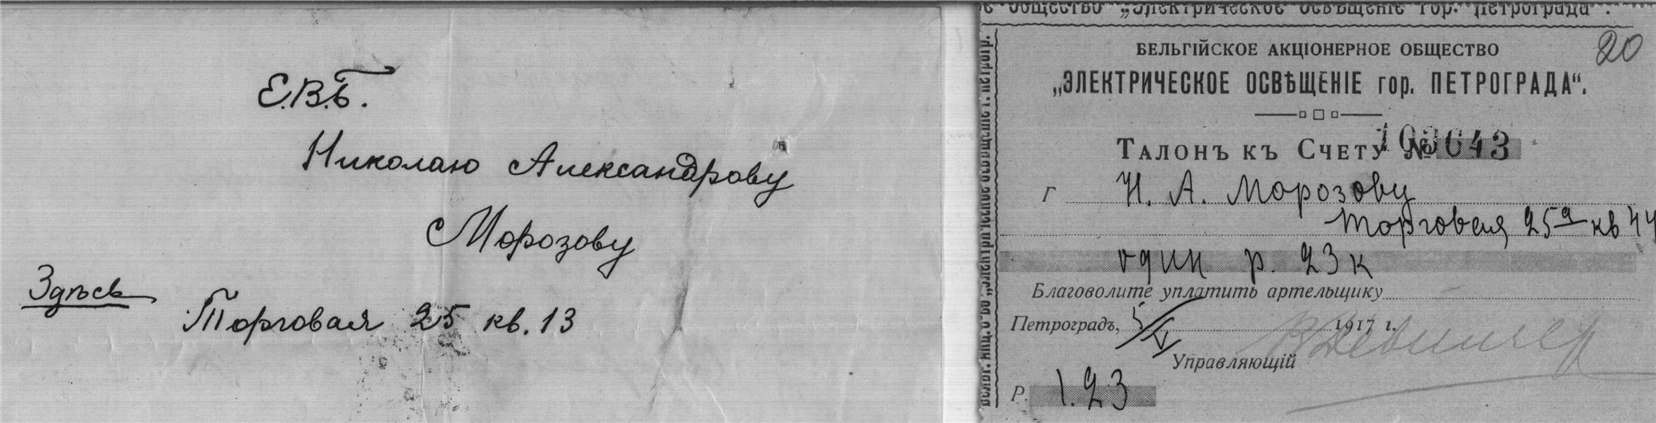 Е.В.Б.
Николаю Александрову
Морозову
Здѣсь
Торговая 25 кв. 13
е общество „Электрическое освѣщеніе гор. Петрограда“.
20
БЕЛЬГІЙСКОЕ АКЦІОНЕРНОЕ ОБЩЕСТВО
„ЭЛЕКТРИЧЕСКОЕ ОСВѢЩЕНІЕ гор. ПЕТРОГРАДА“.
Талонъ къ Счету № 103643
Г Н. А. Морозову
Торговая 25 кв 44
один р. 23 к
Благоволите уплатить артельщику
Петроградъ, 5/V 1917 г.
Управляющій
Р. 1.23